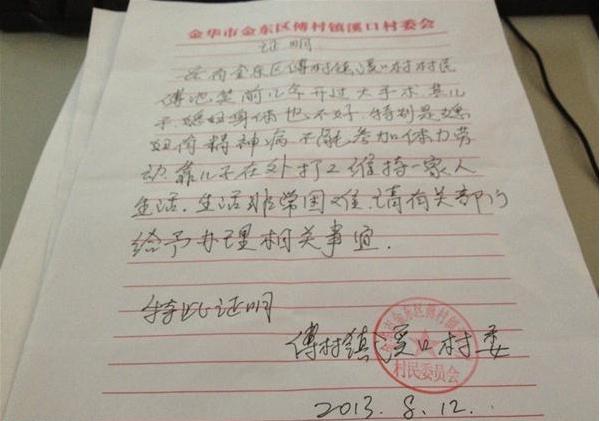 金华市金东区傅村镇溪口村委会
证明
兹有金东区傅村镇溪口村村民
傅池芝前几年开过大手术.其儿
子.媳妇身体也不好.特别是媳
妇有精神病不能参加体力劳
动.靠儿子在外打工维持一家人
生活.生活非常困难.请有关部门
给予办理相关事宜.
特此证明
傅村镇溪口村委
金华市金东区傅村镇溪口村
村民委员会
2013.8.12.